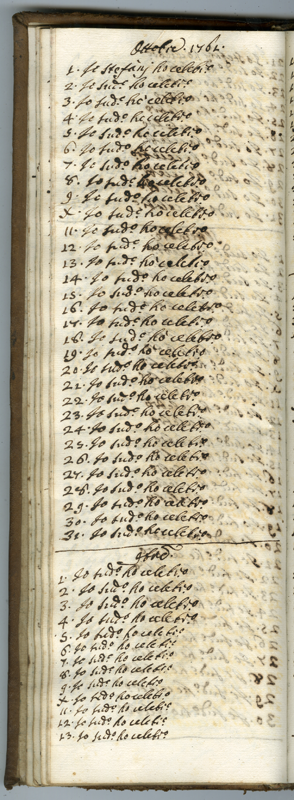 Ottobre. 1761.
1. Io Stefanj ho celebr.o
2. Io sud.o ho celebr.o
3. Io sud.o ho celebr.o
4. Io sud.o ho celebr.o
5. Io sud.o ho celebr.o
6. Io sud.o ho celebr.o
7. Io sud.o ho celebr.o
8. Io sud.o ho celebr.o
9. Io sud.o ho celebr.o
X. Io sud.o ho celebr.o
11. Io sud.o ho celebr.o
12. Io sud.o ho celebr.o
13. Io sud.o ho celebr.o
14. Io sud.o ho celebr.o
15. Io sud.o ho celebr.o
16. Io sud.o ho celebr.o
17. Io sud.o ho celebr.o
18. Io sud.o ho celebr.o
19. Io sud.o ho celebr.o
20. Io sud.o ho celebr.o
21. Io sud.o ho celebr.o
22. Io sud.o ho celebr.o
23. Io sud.o ho celebr.o
24. Io sud.o ho celebr.o
25. Io sud.o ho celebr.o
26. Io sud.o ho celebr.o
27. Io sud.o ho celebr.o
28. Io sud.o ho celebr.o
29. Io sud.o ho celebr.o
30. Io sud.o ho celebr.o
31. Io sud.o ho celebr.o
9bre.
1. Io sud.o ho celebr.o
2. Io sud.o ho celebr.o
3. Io sud.o ho celebr.o
4. Io sud.o ho celebr.o
5. Io sud.o ho celebr.o
6. Io sud.o ho celebr.o
7. Io sud.o ho celebr.o
8. Io sud.o ho celebr.o
9. Io sud.o ho celebr.o
X. Io sud.o ho celebr.o
11. Io sud.o ho celebr.o
12. Io sud.o ho celebr.o
13. Io sud.o ho celebr.o